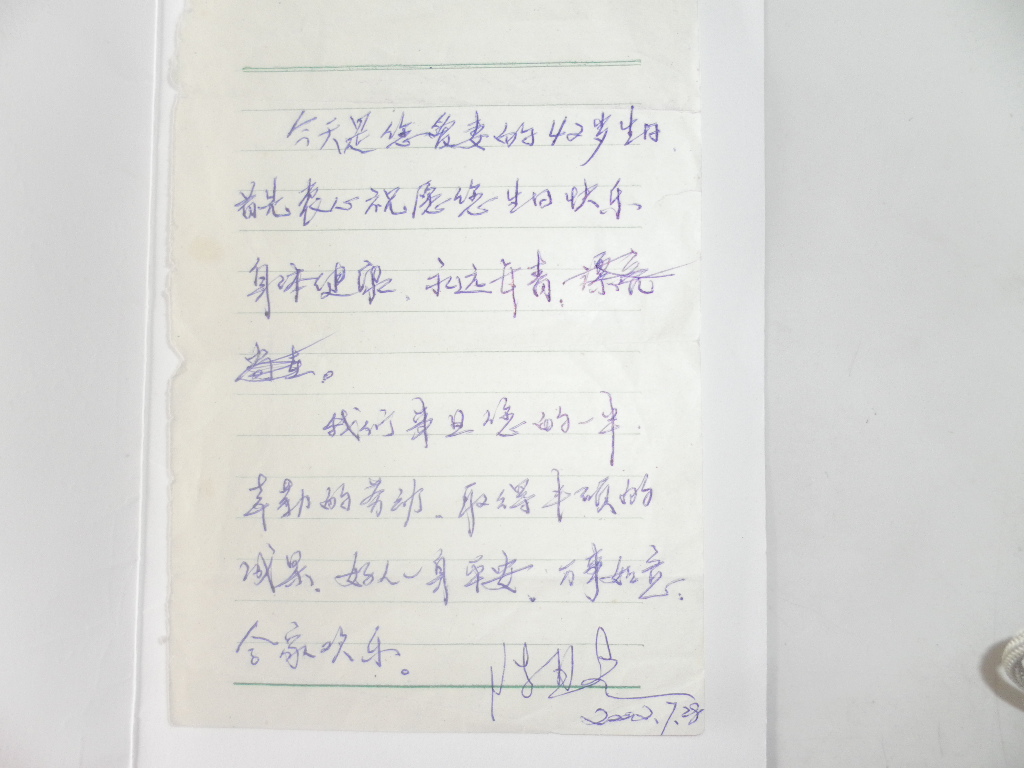 今天是您爱妻的42岁生日
首先衷心祝愿您生日快乐
身体健康、永远年青、漂亮
。
我们来且您的一半
辛勤的劳动、取得丰硕的
成果、好人一身平安、万事如意、
合家欢乐。
2002.7.28